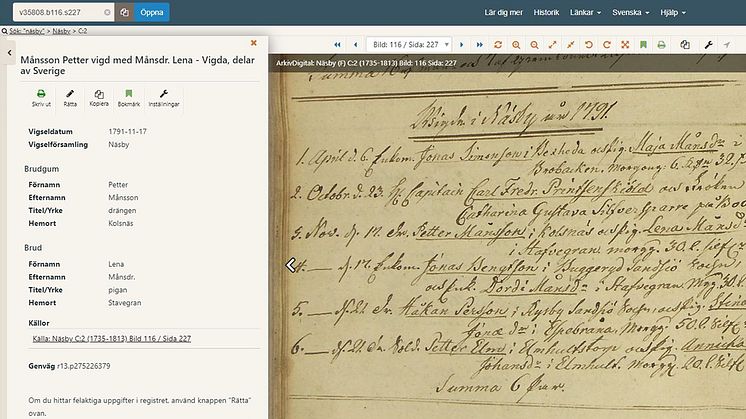 v35808.b116.s227
Öppna
Lär dig mer
Historik
Länkar
Svenska
Hjälp
Sök: "näsby" > Näsby > C:2
Bild: 116 / Sida: 227
Månsson Petter vigd med Månsdr. Lena - Vigda, delar
av Sverige
Skriv ut
Rätta
Kopiera
Bokmärk
Inställningar
Vigseldatum 1791-11-17
Vigselförsamling Näsby
Brudgum
Förnamn Petter
Efternamn Månsson
Titel/Yrke drängen
Hemort Kolsnäs
Brud
Förnamn Lena
Efternamn Månsdr.
Titel/Yrke pigan
Hemort Stavegran
Källor
Källa: Näsby C:2 (1735-1813) Bild 116 / Sida 227
Genväg r13.p275226379
Om du hittar felaktiga uppgifter i registret, använd knappen "Rätta"
ovan.
ArkivDigital: Näsby (F) C:2 (1735-1813) Bild: 116 Sida: 227
Wigde i Näsby år 1791.
1. April d. 6. Jonas Simonson i Hexheda och pig. Maja Månsdr i
Brobacken. Morgong. 6.
2. Octobr d. 23. Capitain Carl Fredr Printsenskiöld och fröken
Catharina Gustava Silfversparre på
3. Nov. d. 17. dr. Petter Månsson i Kolsnäs och pig. Lena Månsdr
i Stafvegran morgg. 30. l. silf
4. — d. 17. Jonas Bengtson i Buggeryd Sandsjö
och Dordi Månsdr i Stafvegran Mgg. 30. l.
5. — d. 21. dr. Håkan Person i Ryssby Sandsjö och pig.
Jonædr i Morgg. 50. l. silf
6. — d. 21. Sold. Petter Elm i Elmhultstorp och pig. Annicka
Johansdr i Elmhult. morgg. 20. l. silf
Summa 6 Par.